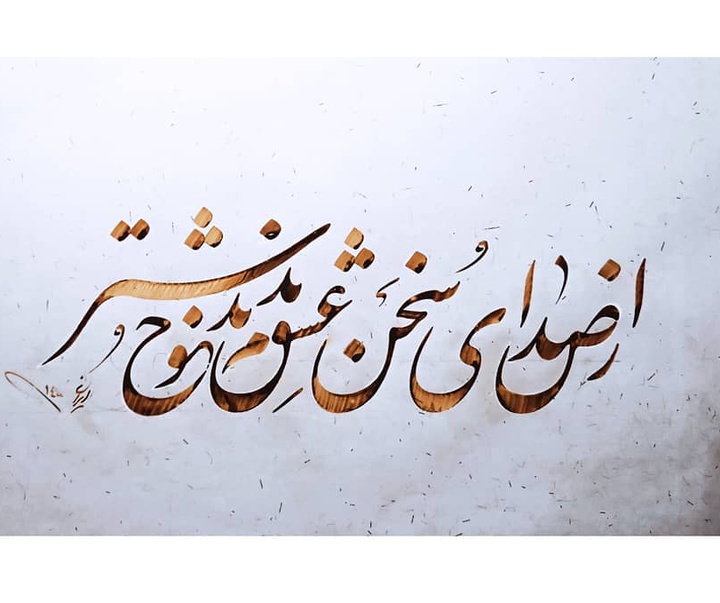 از صدای سُخَن عشق ندیدم خوشتر